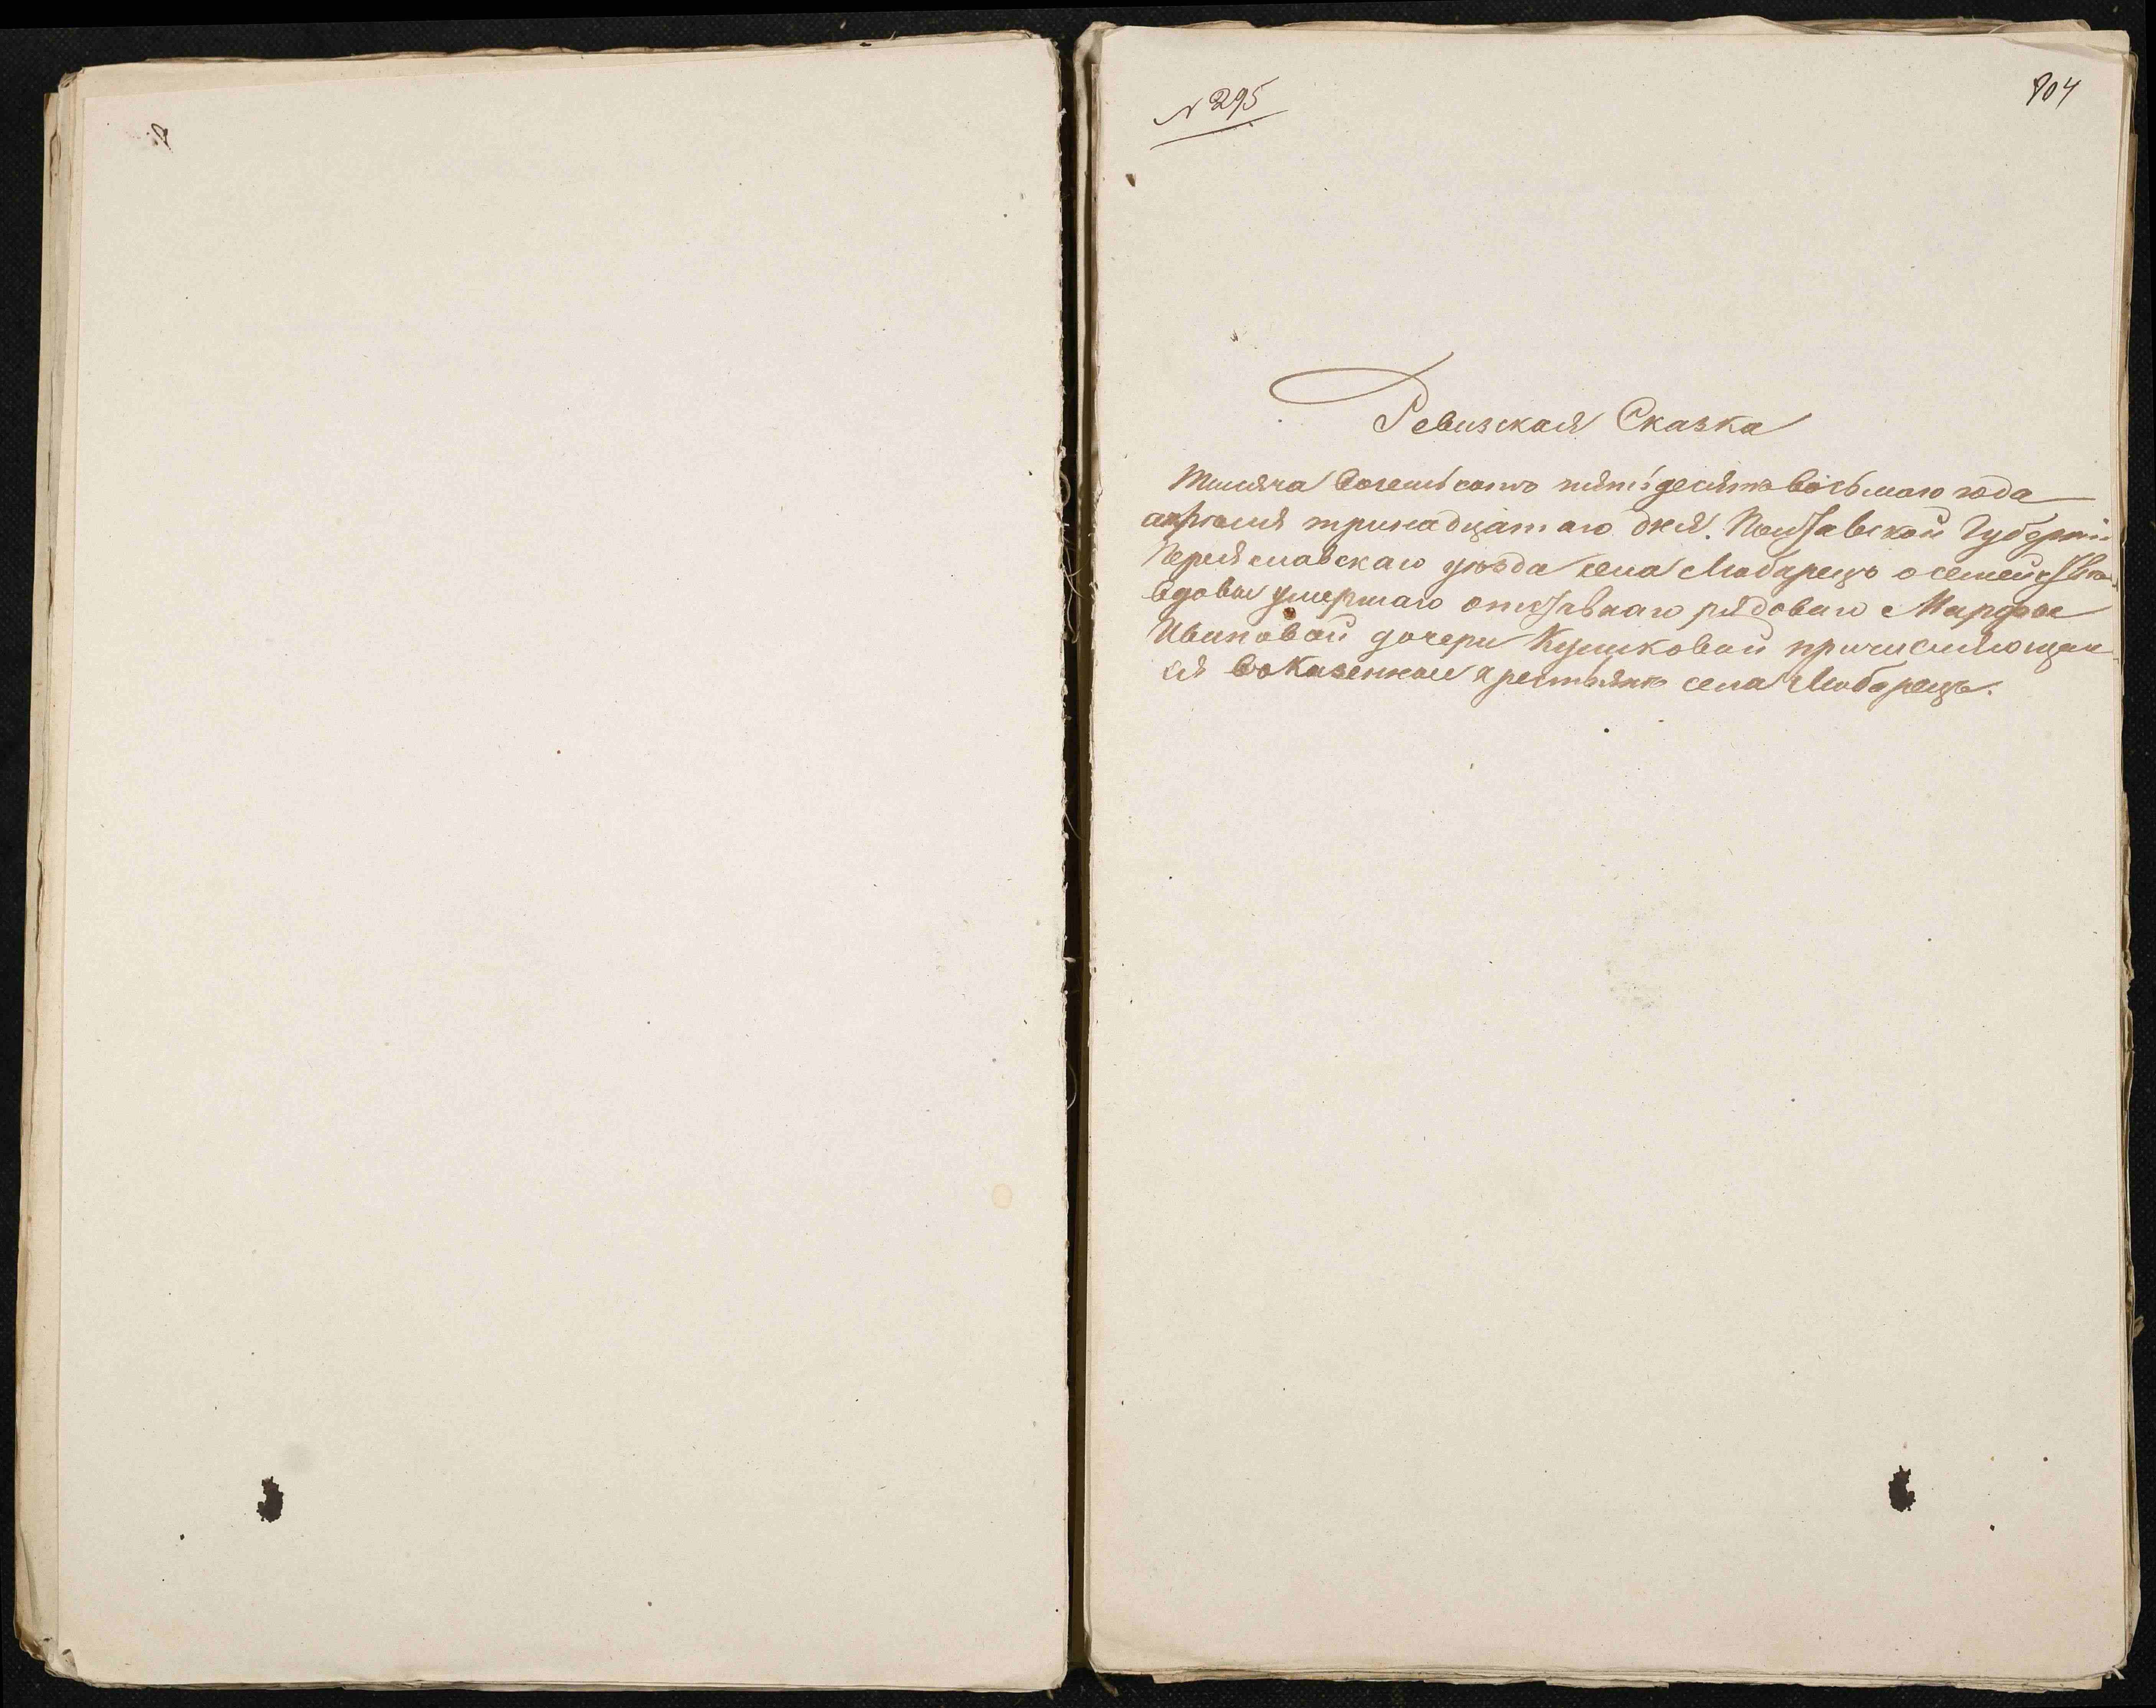 № 295
804
Ревизская Сказка
Тисяча восемьсотъ пятьдесятъ восьмаго года
апреля тринадцатаго дня. Полтавской Губерніи
Переяславскаго уѣзда села Любарецъ о семействѣ
вдовы умершаго отставнаго рядоваго Марфы
Ивановой дочери Кушковой причисляющая
ся въ казенные крестьянъ села Любарецъ.